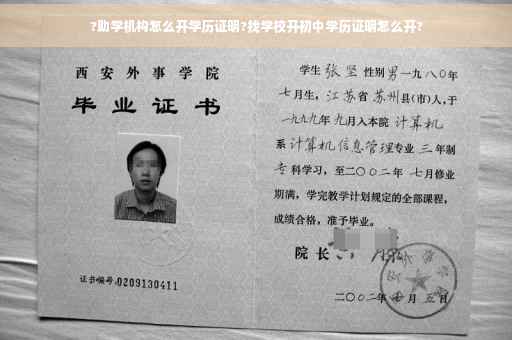 ?助学机构怎么开学历证明?找学校开初中学历证明怎么开?
西安外事学院
毕业证书
证书编号:0209130411
学生 张坚 性别 男 一九八〇年
七月生, 江苏省 苏州县(市)人,于
一九九九年 九月入本院 计算机
系 计算机信息管理专业 三 年制
专 科学习, 至二〇〇二年 七月修业
期满, 学完教学计划规定的全部课程,
成绩合格, 准予毕业。
院长
二〇〇二年 月 五日